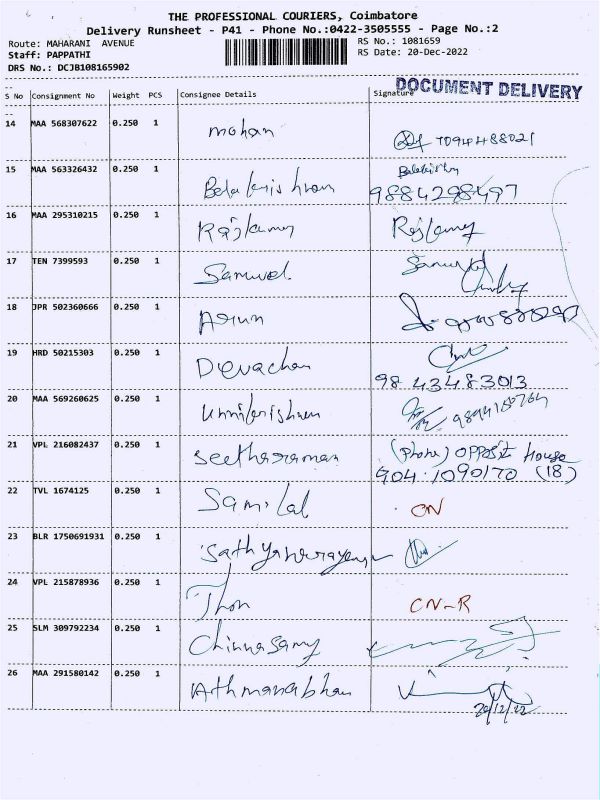 THE PROFESSIONAL COURIERS, Coimbatore
Delivery Runsheet - P41 - Phone No.:0422-3505555 - Page No.:2
Route: MAHARANI AVENUE RS No.: 1081659
Staff: PAPPATHI RS Date: 20-Dec-2022
DRS No.: DCJB108165902
DOCUMENT DELIVERY
S No Consignment No Weight PCS Consignee Details Signature
14 MAA 568307622 0.250 1 mohan 7094488021
15 MAA 563326432 0.250 1 Balakrishnan
9884298497
16 MAA 295310215 0.250 1 Rajkumar Rajkumar
17 TEN 7399593 0.250 1 Samuvel Samuvel
18 JPR 502360666 0.250 1 Arjun
19 HRD 50215303 0.250 1 Devachan
98 43483013
20 MAA 569260625 0.250 1 Unnikrishnan
21 VPL 216082437 0.250 1 Seetharaman (Phone) OPPOSIT House
904.1090170 (18)
22 TVL 1674125 0.250 1 Sami Lal CN
23 BLR 1750691931 0.250 1 Sathyanarayanan
24 VPL 215878936 0.250 1 Thon CN-R
25 SLM 309792234 0.250 1 Chinnasamy
26 MAA 291580142 0.250 1 Athmanabhan
20/12/22